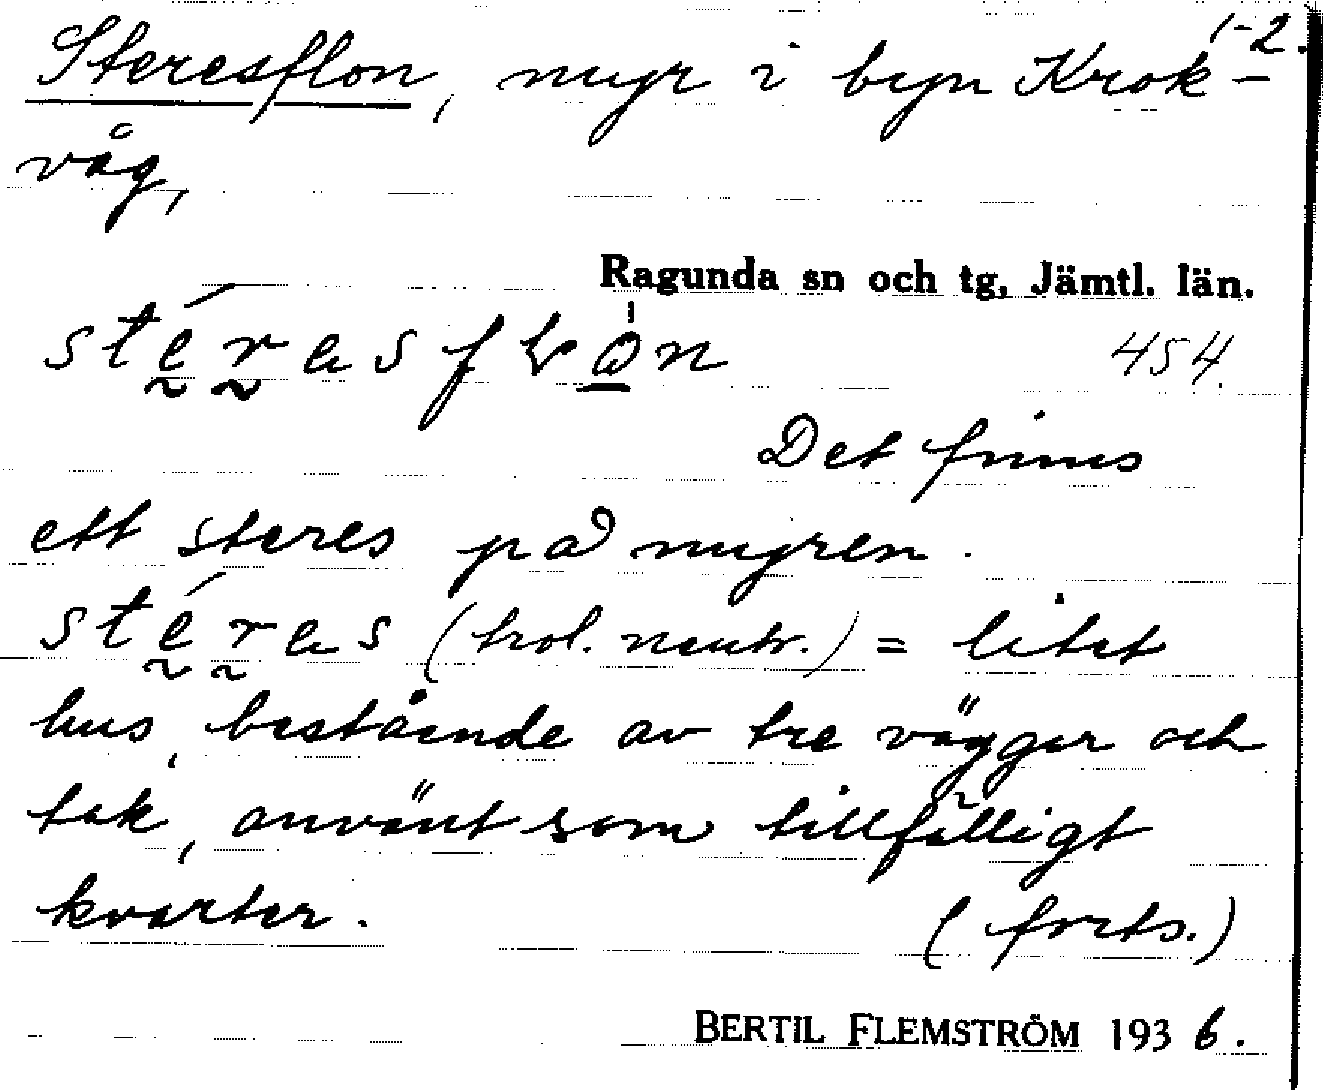 1-2.
Steresflon, myr i byn Krok-
våg,
Ragunda sn och tg, Jämtl. län.
454.
Det finns
ett steres på myren.
stéres (trol. neutr.) = litet
hus, bestående av tre väggar och
tak, använt som tillfälligt
kvarter. (forts.)
BERTIL FLEMSTRÖM 1936.